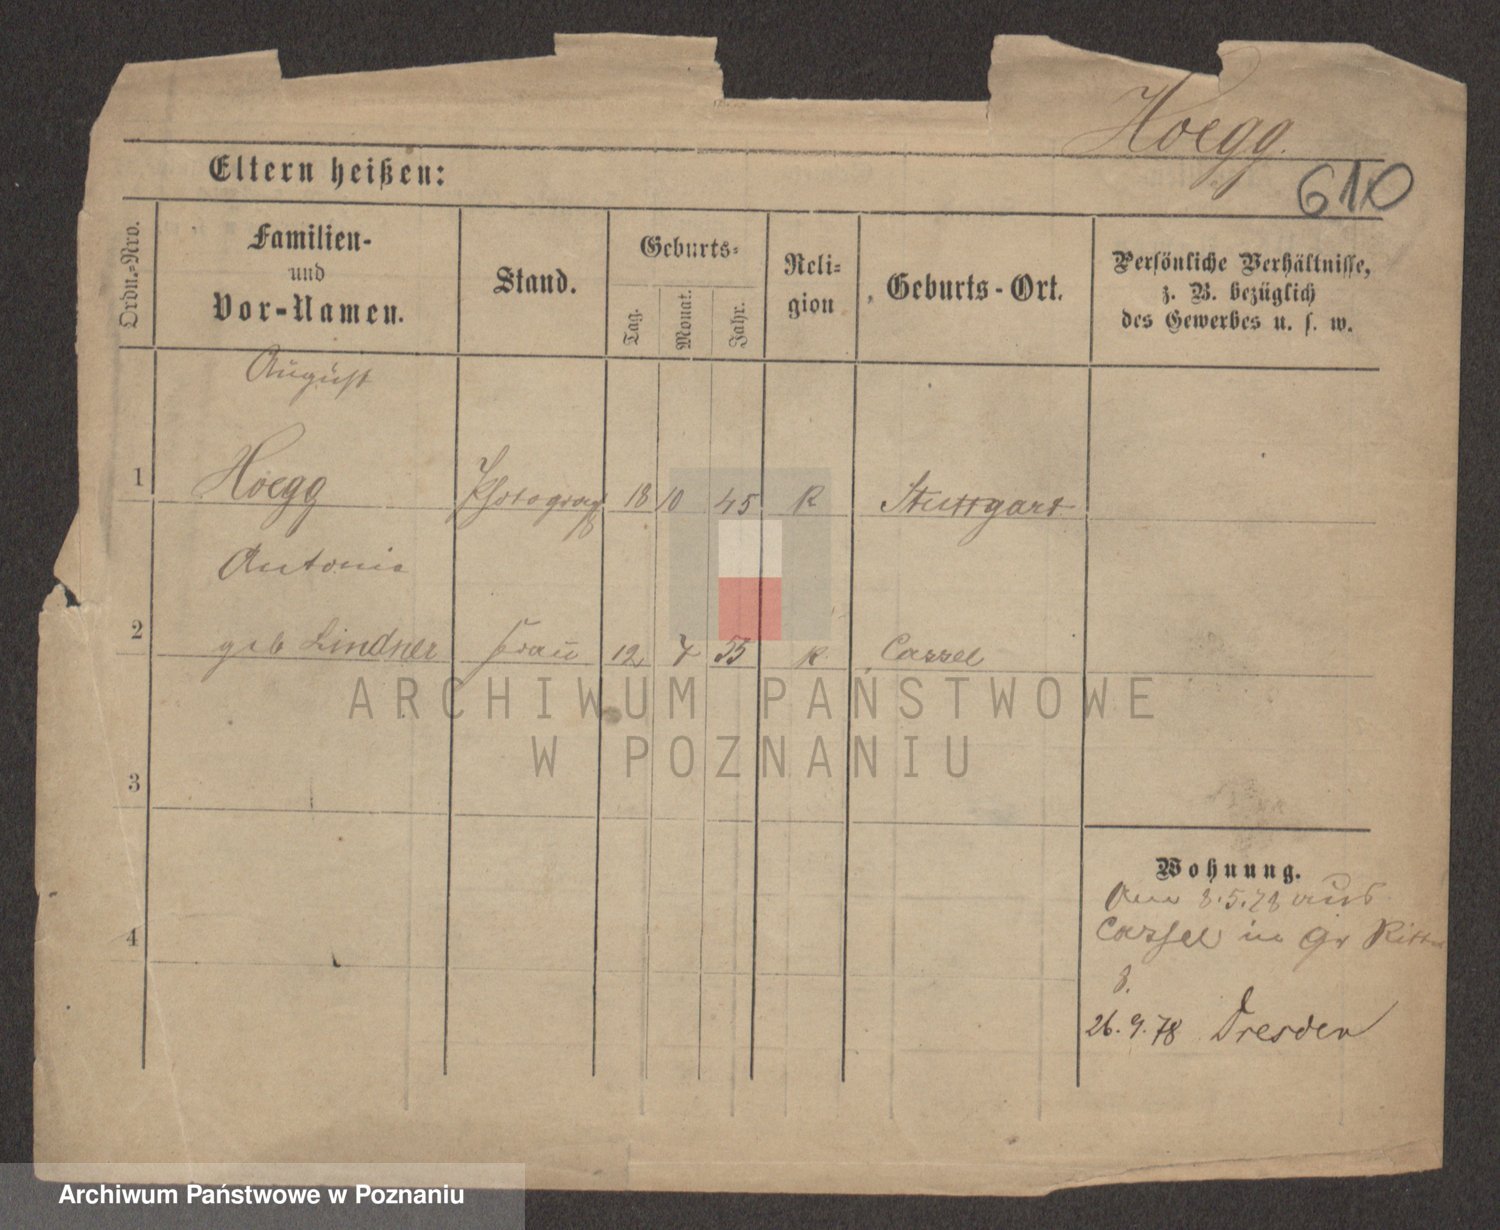 Hoegg.
610
Eltern heißen:
Ordn.-Nro.
Familien-
und
Vor-Namen.
Stand.
Geburts-
Tag.
Monat.
Jahr.
Reli-
gion
Geburts-Ort.
Persönliche Verhältnisse,
z. B. bezüglich
des Gewerbes u. s. w.
August
1 Hoegg Photograf 18 10 45 K Stuttgart
Antonie
2 geb Lindner Frau 12 7 55 K Cassel
3
4
Wohnung.
8.5.78 aus
Cassel in Gr Ritter
8.
26.9.78 Dresden
ARCHIWUM PAŃSTWOWE
W POZNANIU
Archiwum Państwowe w Poznaniu